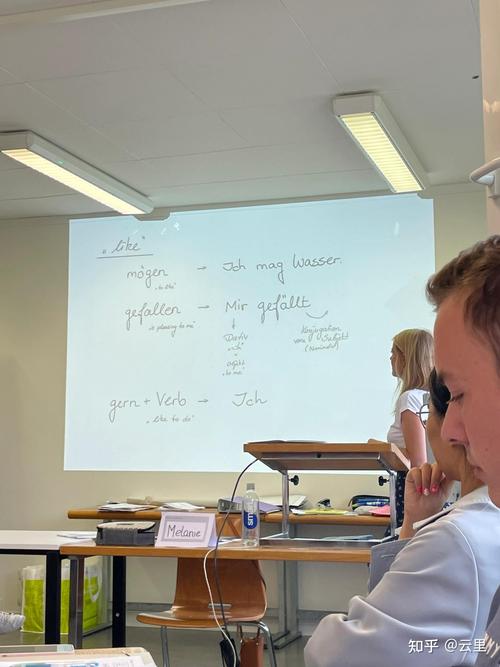 „like"
mögen → Ich mag Wasser.
„to like"
gefallen → Mir gefällt
„is pleasing to me"
↓
Dativ
Objekt
„to me"
Konjugation
vom Subjekt
(Nominativ)
gern + Verb → Ich
„like to do"
Melanie
知乎 @云里